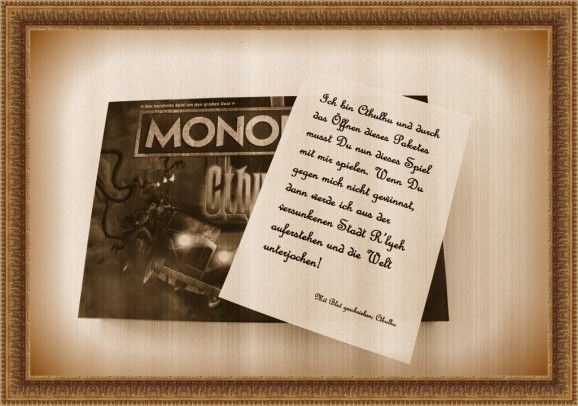 Das berühmte Spiel um den großen Deal
MONO
Cthu
Ich bin Cthulhu und durch
das Öffnen dieses Paketes
musst Du nun dieses Spiel
mit mir spielen. Wenn Du
gegen mich nicht gewinnst,
dann werde ich aus der
versunkenen Stadt R'lyeh
auferstehen und die Welt
unterjochen!
Mit Blut geschrieben: Cthulhu